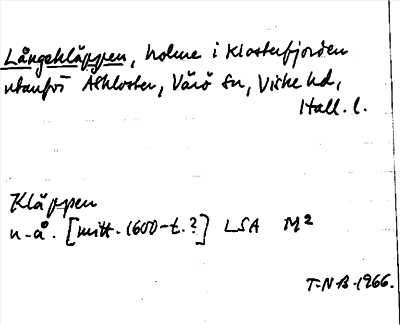 Långekläppen, holme i Klosterfjorden
utanför Åskloster, Värö sn, Viske hd,
Hall. l.
Kläppen
u. å. [mitt. 1600-t.?] LSA M²
T-N B. 1966.